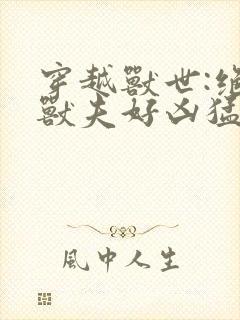 穿越獸世:絕
獸夫好凶猛
風中人生